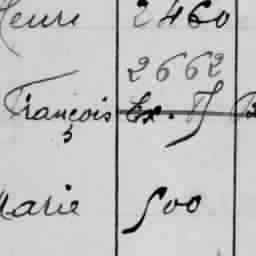 Henri 2460
2662
François Ex. II
Marie 500